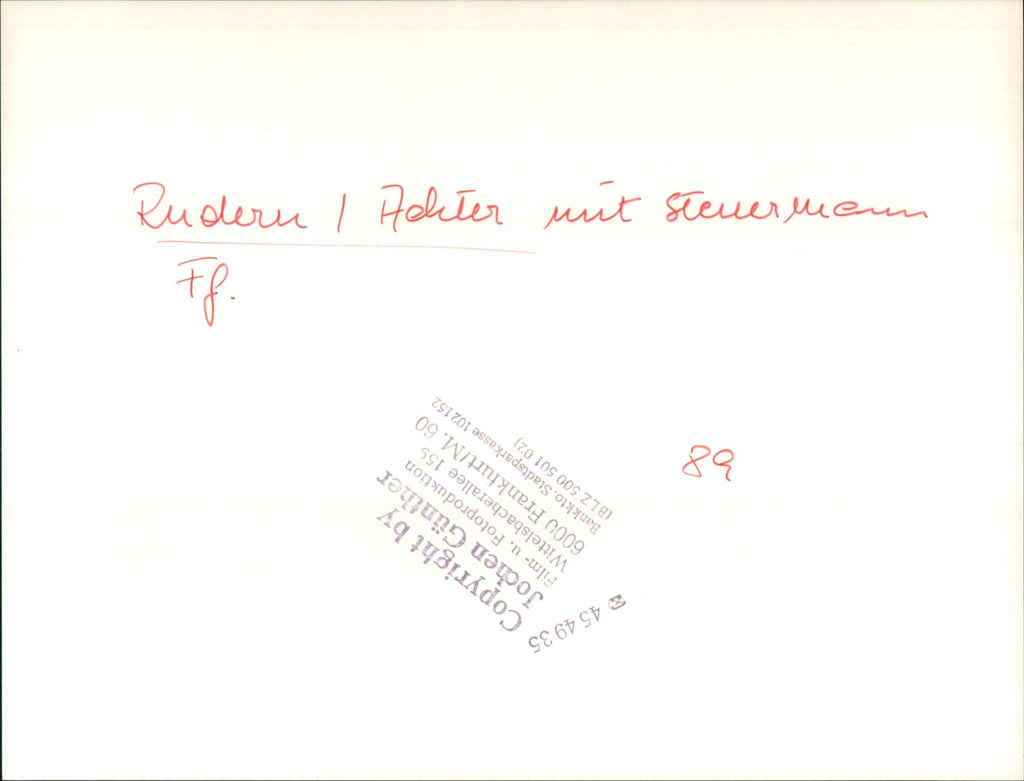 Rudern / Achter mit Steuermann
Ff.
89
Copyright by
Jochen Günther
Film- u. Fotoproduktion
Wittelsbacherallee 159
6000 Frankfurt/M. 60
Bankkto. Stadtsparkasse 102152
(BLZ 500 501 02)
☎ 45 49 35